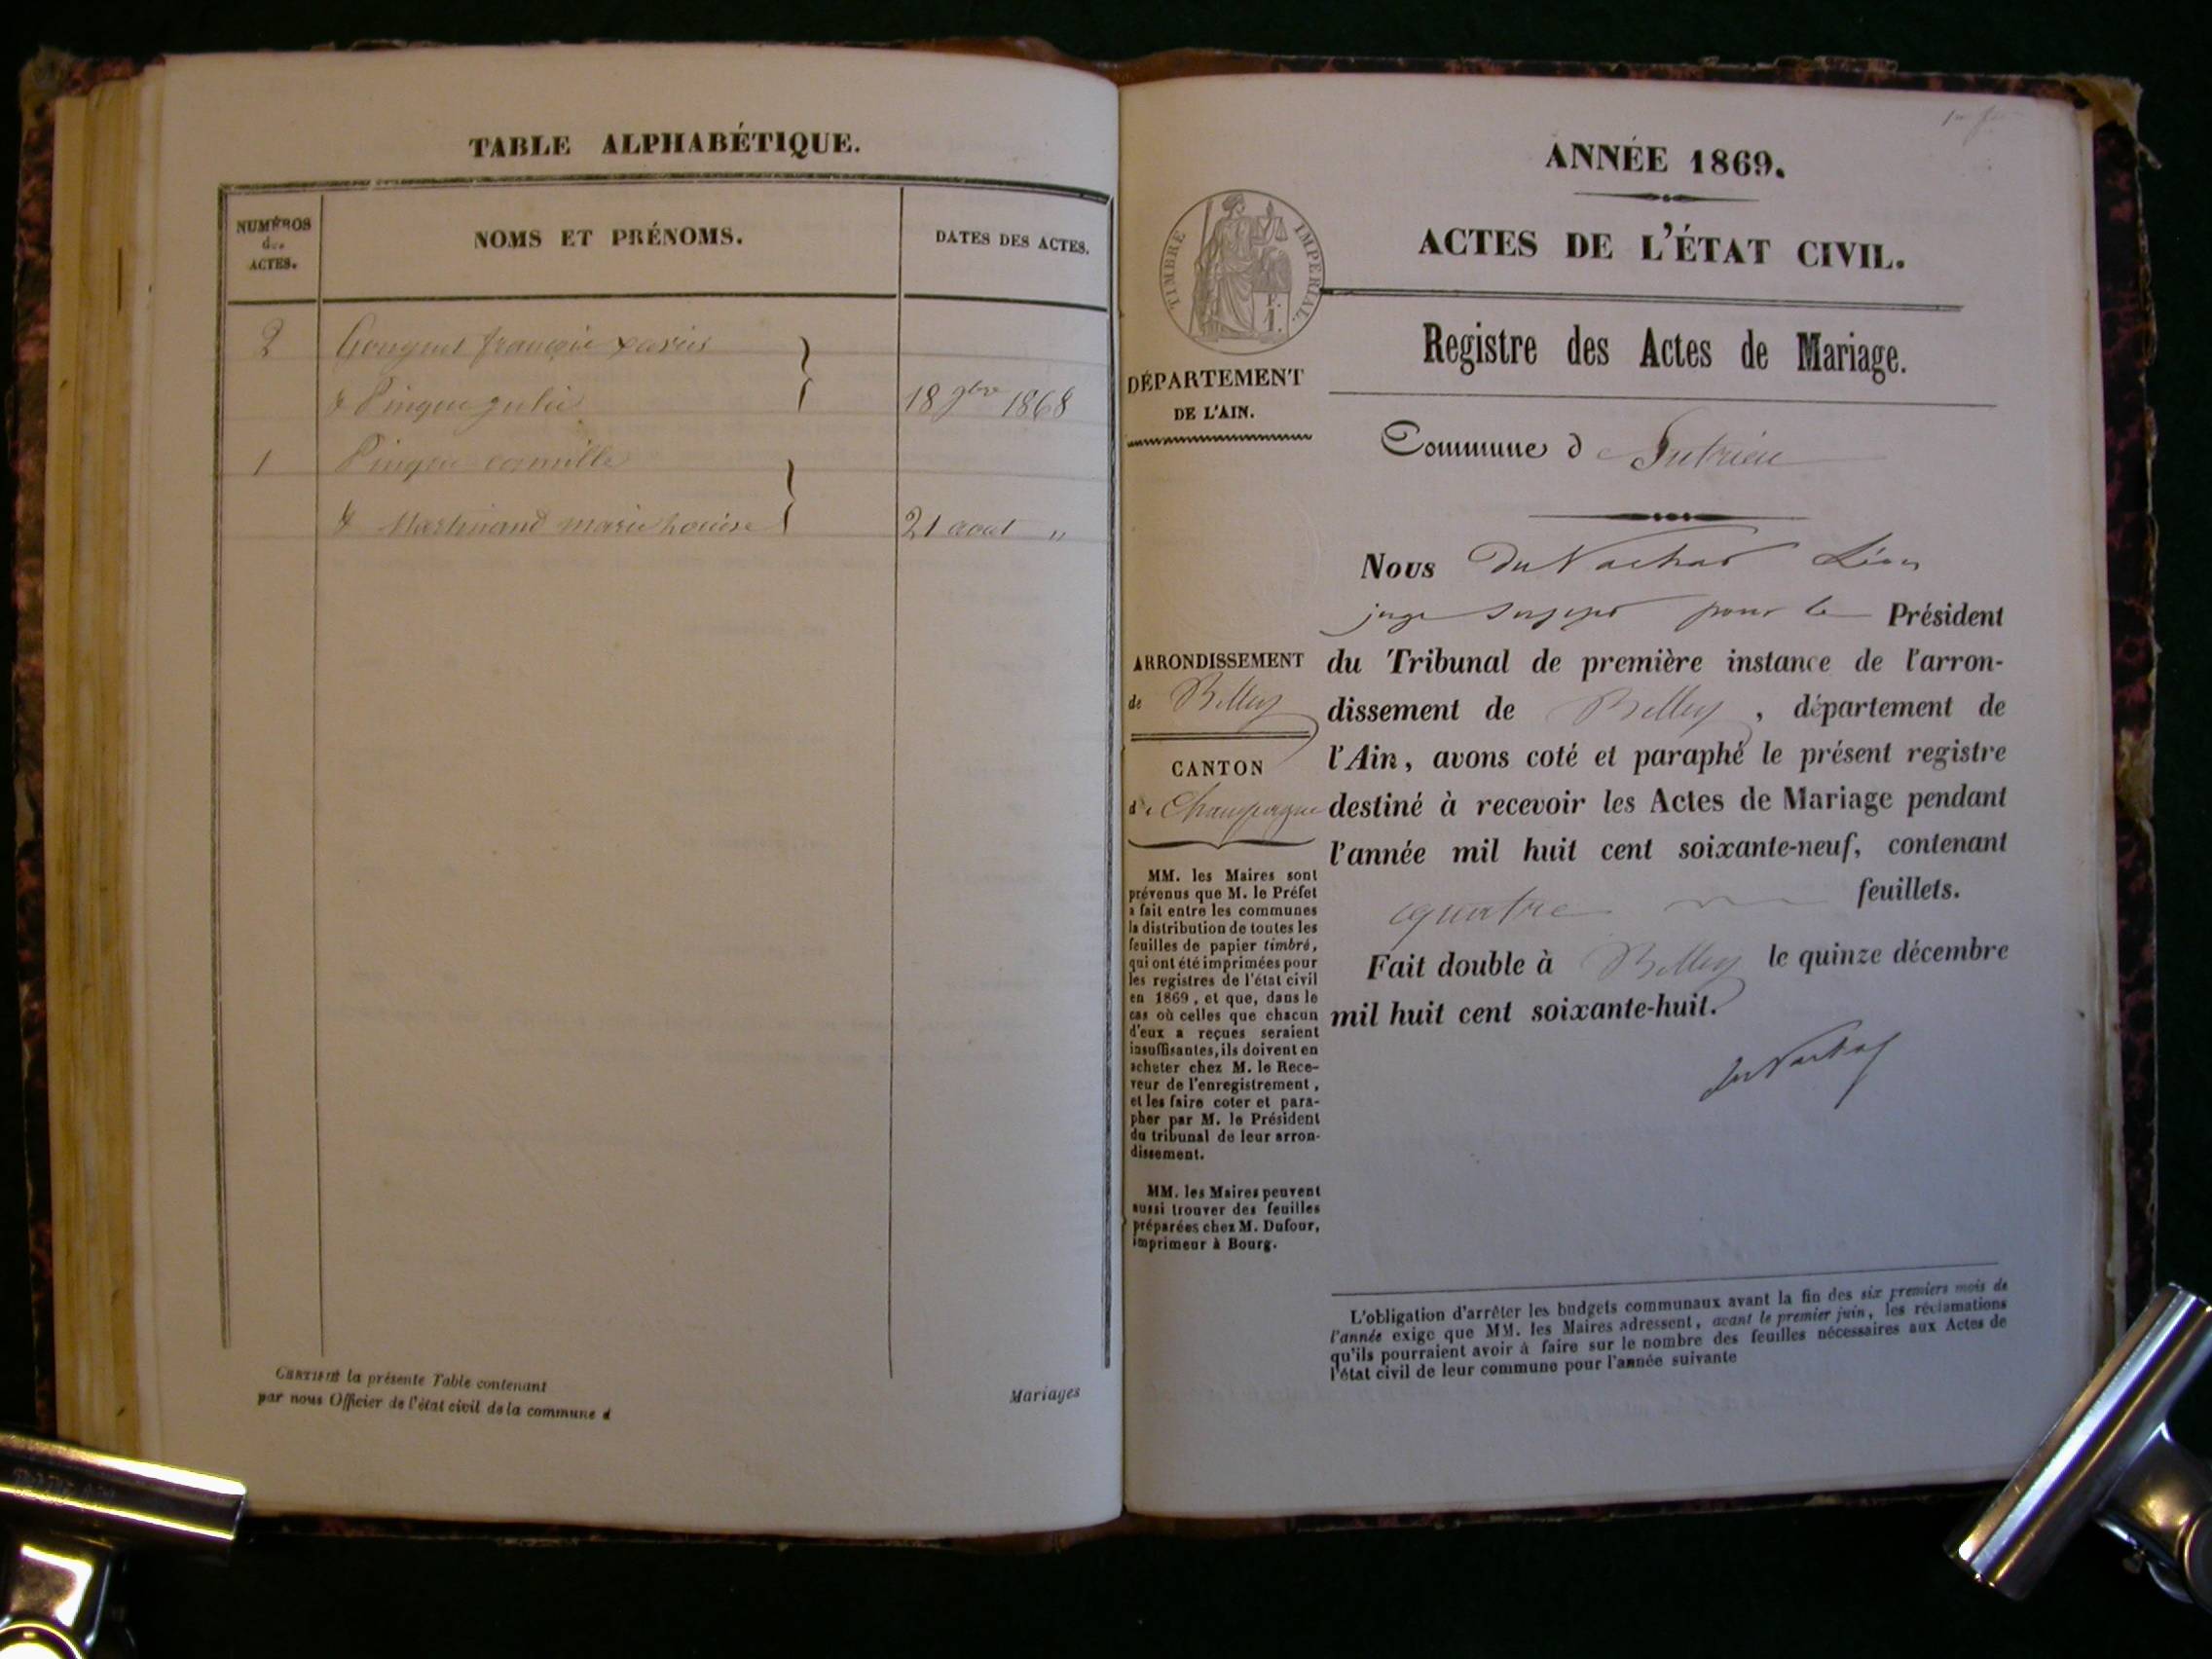 TABLE ALPHABÉTIQUE.
NUMÉROS
des
ACTES.
NOMS ET PRÉNOMS.
DATES DES ACTES.
2
françois xavier
& Pingeu julie
18 9bre 1868
1
Pingeu camille
& Martinand marie Louise
21 aout "
CERTIFIÉ la présente Table contenant
Mariages
par nous Officier de l'état civil de la commune d
ANNÉE 1869.
ACTES DE L'ÉTAT CIVIL.
TIMBRE IMPÉRIAL.
Registre des Actes de Mariage.
DÉPARTEMENT
DE L'AIN.
Commune de Sutrieu
Nous Léon
juge pour le Président
ARRONDISSEMENT
de Belley
CANTON
de Champagne
du Tribunal de première instance de l'arron-
dissement de Belley, département de
l'Ain, avons coté et paraphé le présent registre
destiné à recevoir les Actes de Mariage pendant
l'année mil huit cent soixante-neuf, contenant
quatre feuillets.
Fait double à Belley le quinze décembre
mil huit cent soixante-huit.
MM. les Maires sont
prévenus que M. le Préfet
a fait entre les communes
la distribution de toutes les
feuilles de papier timbré,
qui ont été imprimées pour
les registres de l'état civil
en 1869, et que, dans le
cas où celles que chacun
d'eux a reçues seraient
insuffisantes, ils doivent en
acheter chez M. le Rece-
veur de l'enregistrement,
et les faire coter et para-
pher par M. le Président
du tribunal de leur arron-
dissement.
MM. les Maires peuvent
aussi trouver des feuilles
préparées chez M. Dufour,
imprimeur à Bourg.
L'obligation d'arrêter les budgets communaux avant la fin des six premiers mois de
l'année exige que MM. les Maires adressent, avant le premier juin, les réclamations
qu'ils pourraient avoir à faire sur le nombre des feuilles nécessaires aux Actes de
l'état civil de leur commune pour l'année suivante